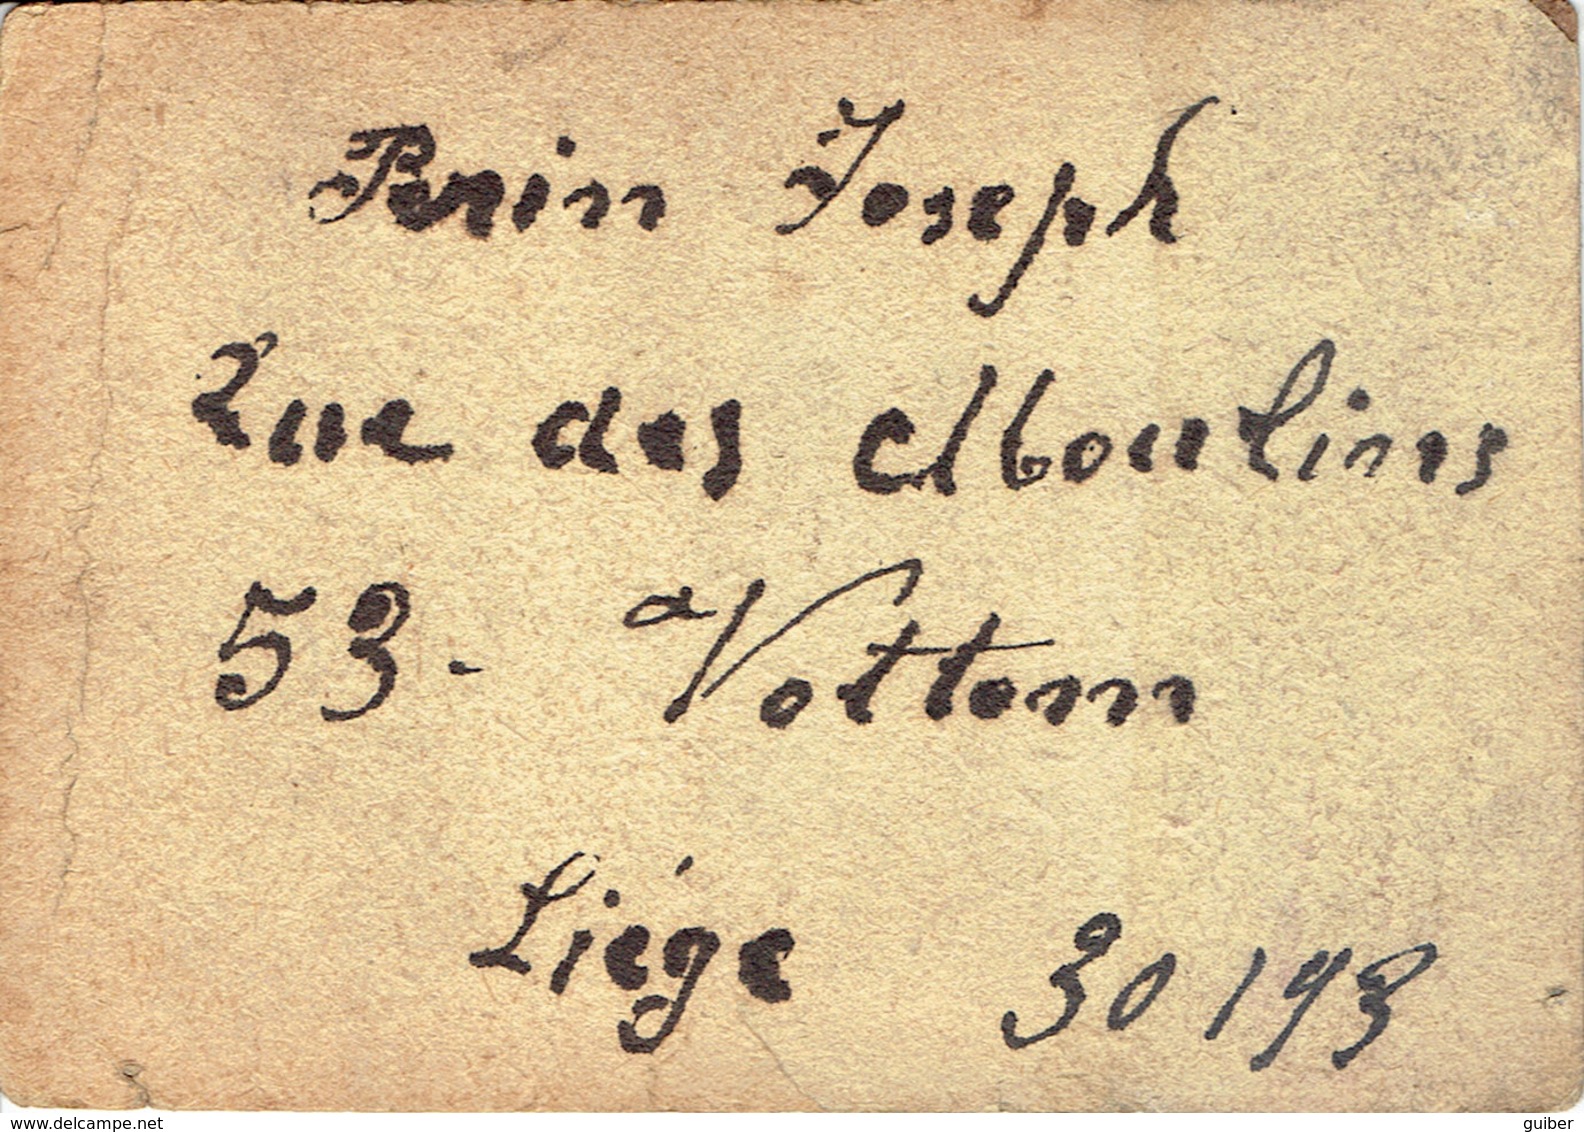 Perin Joseph
Rue des Moulins
53 - Vottem
Liége 30193
delcampe.net
guiber